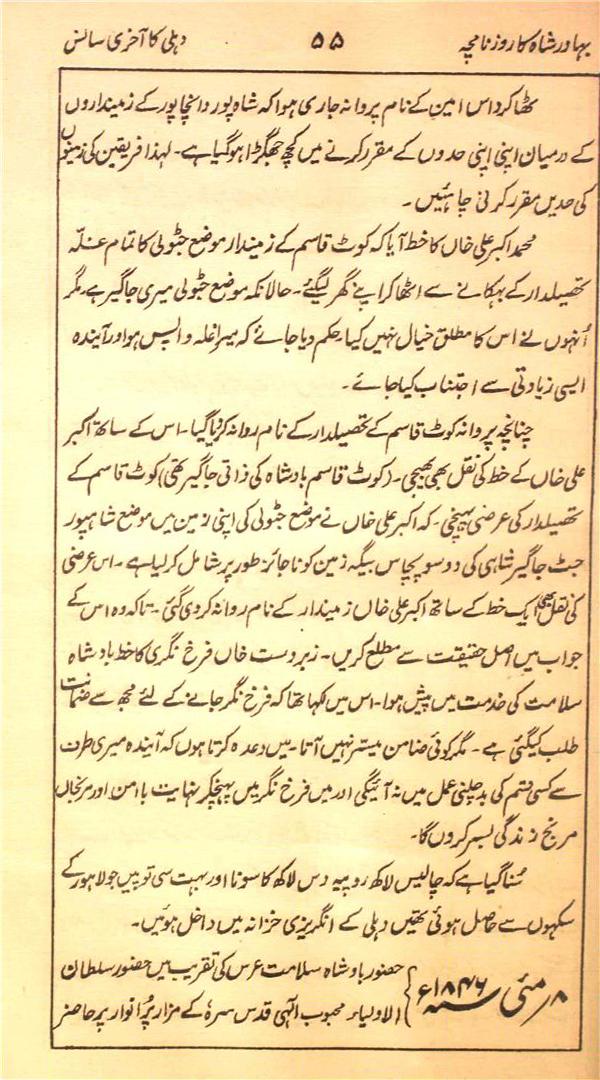 بہادر شاہ کا روزنامچہ ۵۵ دہلی کا آخری سانس
ٹھاکر داس امین کے نام پروانہ جاری ہوا کہ شاہ پور و انچاپور کے زمینداروں
کے درمیان اپنی اپنی حدوں کے مقرر کرنے میں کچھ جھگڑا ہوگیا ہے۔ لہذا فریقین کی زمینوں
کی حدیں مقرر کرنی چاہئیں۔
محمد اکبر علی خاں کا خط آیا کہ کوٹ قاسم کے زمیندار موضع جٹولی کا تمام غلّہ
تحصیلدار کے بہکانے سے اٹھا کر اپنے گھر لیگئے۔ حالانکہ موضع جٹولی میری جاگیر ہے، مگر
اُنہوں نے اس کا مطلق خیال نہیں کیا۔ حکم دیا جائے کہ میرا غلہ واپس ہو اور آیندہ
ایسی زیادتی سے اجتناب کیا جائے۔
چنانچہ پروانہ کوٹ قاسم کے تحصیلدار کے نام روانہ کر دیا گیا۔ اس کے ساتھ اکبر
علی خاں کے خط کی نقل بھی بھیجی۔ (کوٹ قاسم بادشاہ کی ذاتی جاگیر تھی) کوٹ قاسم کے
تحصیلدار کی عرضی پہنچی۔ کہ اکبر علی خاں نے موضع جٹولی کی اپنی زمین میں موضع شاہپور
جٹ جاگیر شاہی کی دو سو پچاس بیگہ زمین کو ناجائز طور پر شامل کر لیا ہے۔ اس عرضی
کی نقل بھی ایک خط کے ساتھ اکبر علی خاں زمیندار کے نام روانہ کر دی گئی۔ تاکہ وہ اس کے
جواب میں اصل حقیقت سے مطلع کریں۔ زبردست خاں فرخ نگری کا خط بادشاہ
سلامت کی خدمت میں پیش ہوا۔ اس میں لکھا تھا کہ فرخ نگر جانے کے لئے مجھ سے ضمانت
طلب کیگئی ہے۔ مگر کوئی ضامن میسّر نہیں آتا۔ میں وعدہ کرتا ہوں کہ آیندہ میری طرف
سے کسی قسم کی بدچلنی عمل میں نہ آئیگی اور میں فرخ نگر میں پہنچکر نہایت با امن اور مرنجاں
مرنج زندگی بسر کروں گا۔
سُنا گیا ہے کہ چالیس لاکھ روپیہ دس لاکھ کا سونا اور بہت سی توپیں جو لاہور کے
سکہوں سے حاصل ہوئی تھیں دہلی کے انگریزی خزانہ میں داخل ہوئیں۔
۸ مئی سنہ ۱۸۴۶ء } حضور بادشاہ سلامت عرس کی تقریب میں حضور سلطان
الاولیاء محبوب الٰہی قدس سرہٗ کے مزار پُر انوار پر حاضر